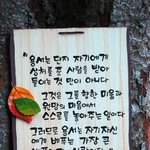 "용서는 단지 자기에게
상처를 준 사람을 받아
들이는 것만이 아니다
그것은 그를 향한 미움과
원망의 마음에서
스스로를 놓아주는 일이다
그러므로 용서는 자기 자신
에게 베푸는 가장 큰